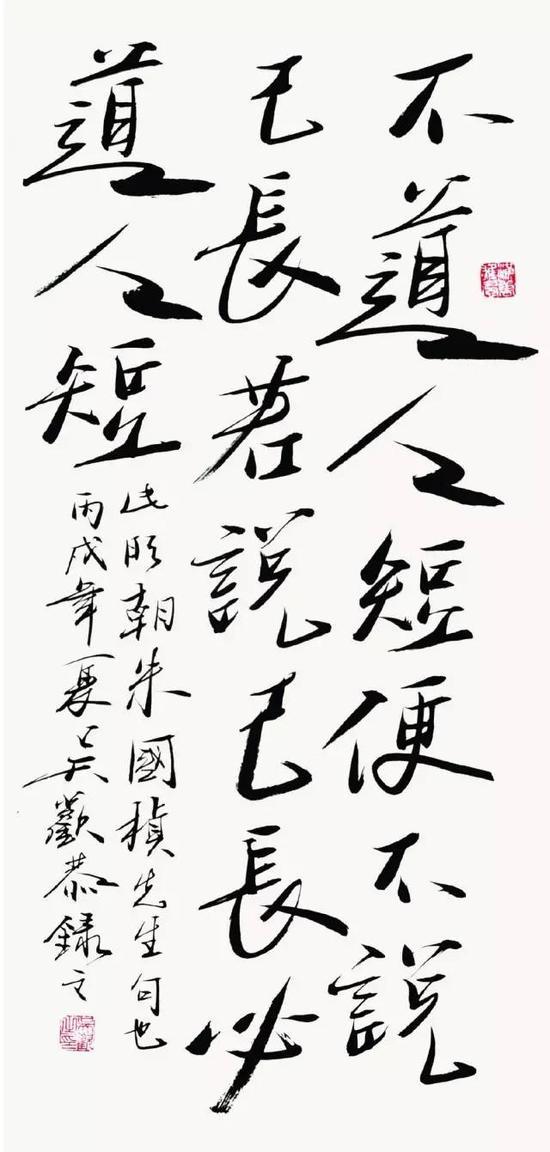 不道人短便不說
己長若說己長必
道人短
此明朝朱國楨先生句也
丙戌年夏吳歡恭錄之